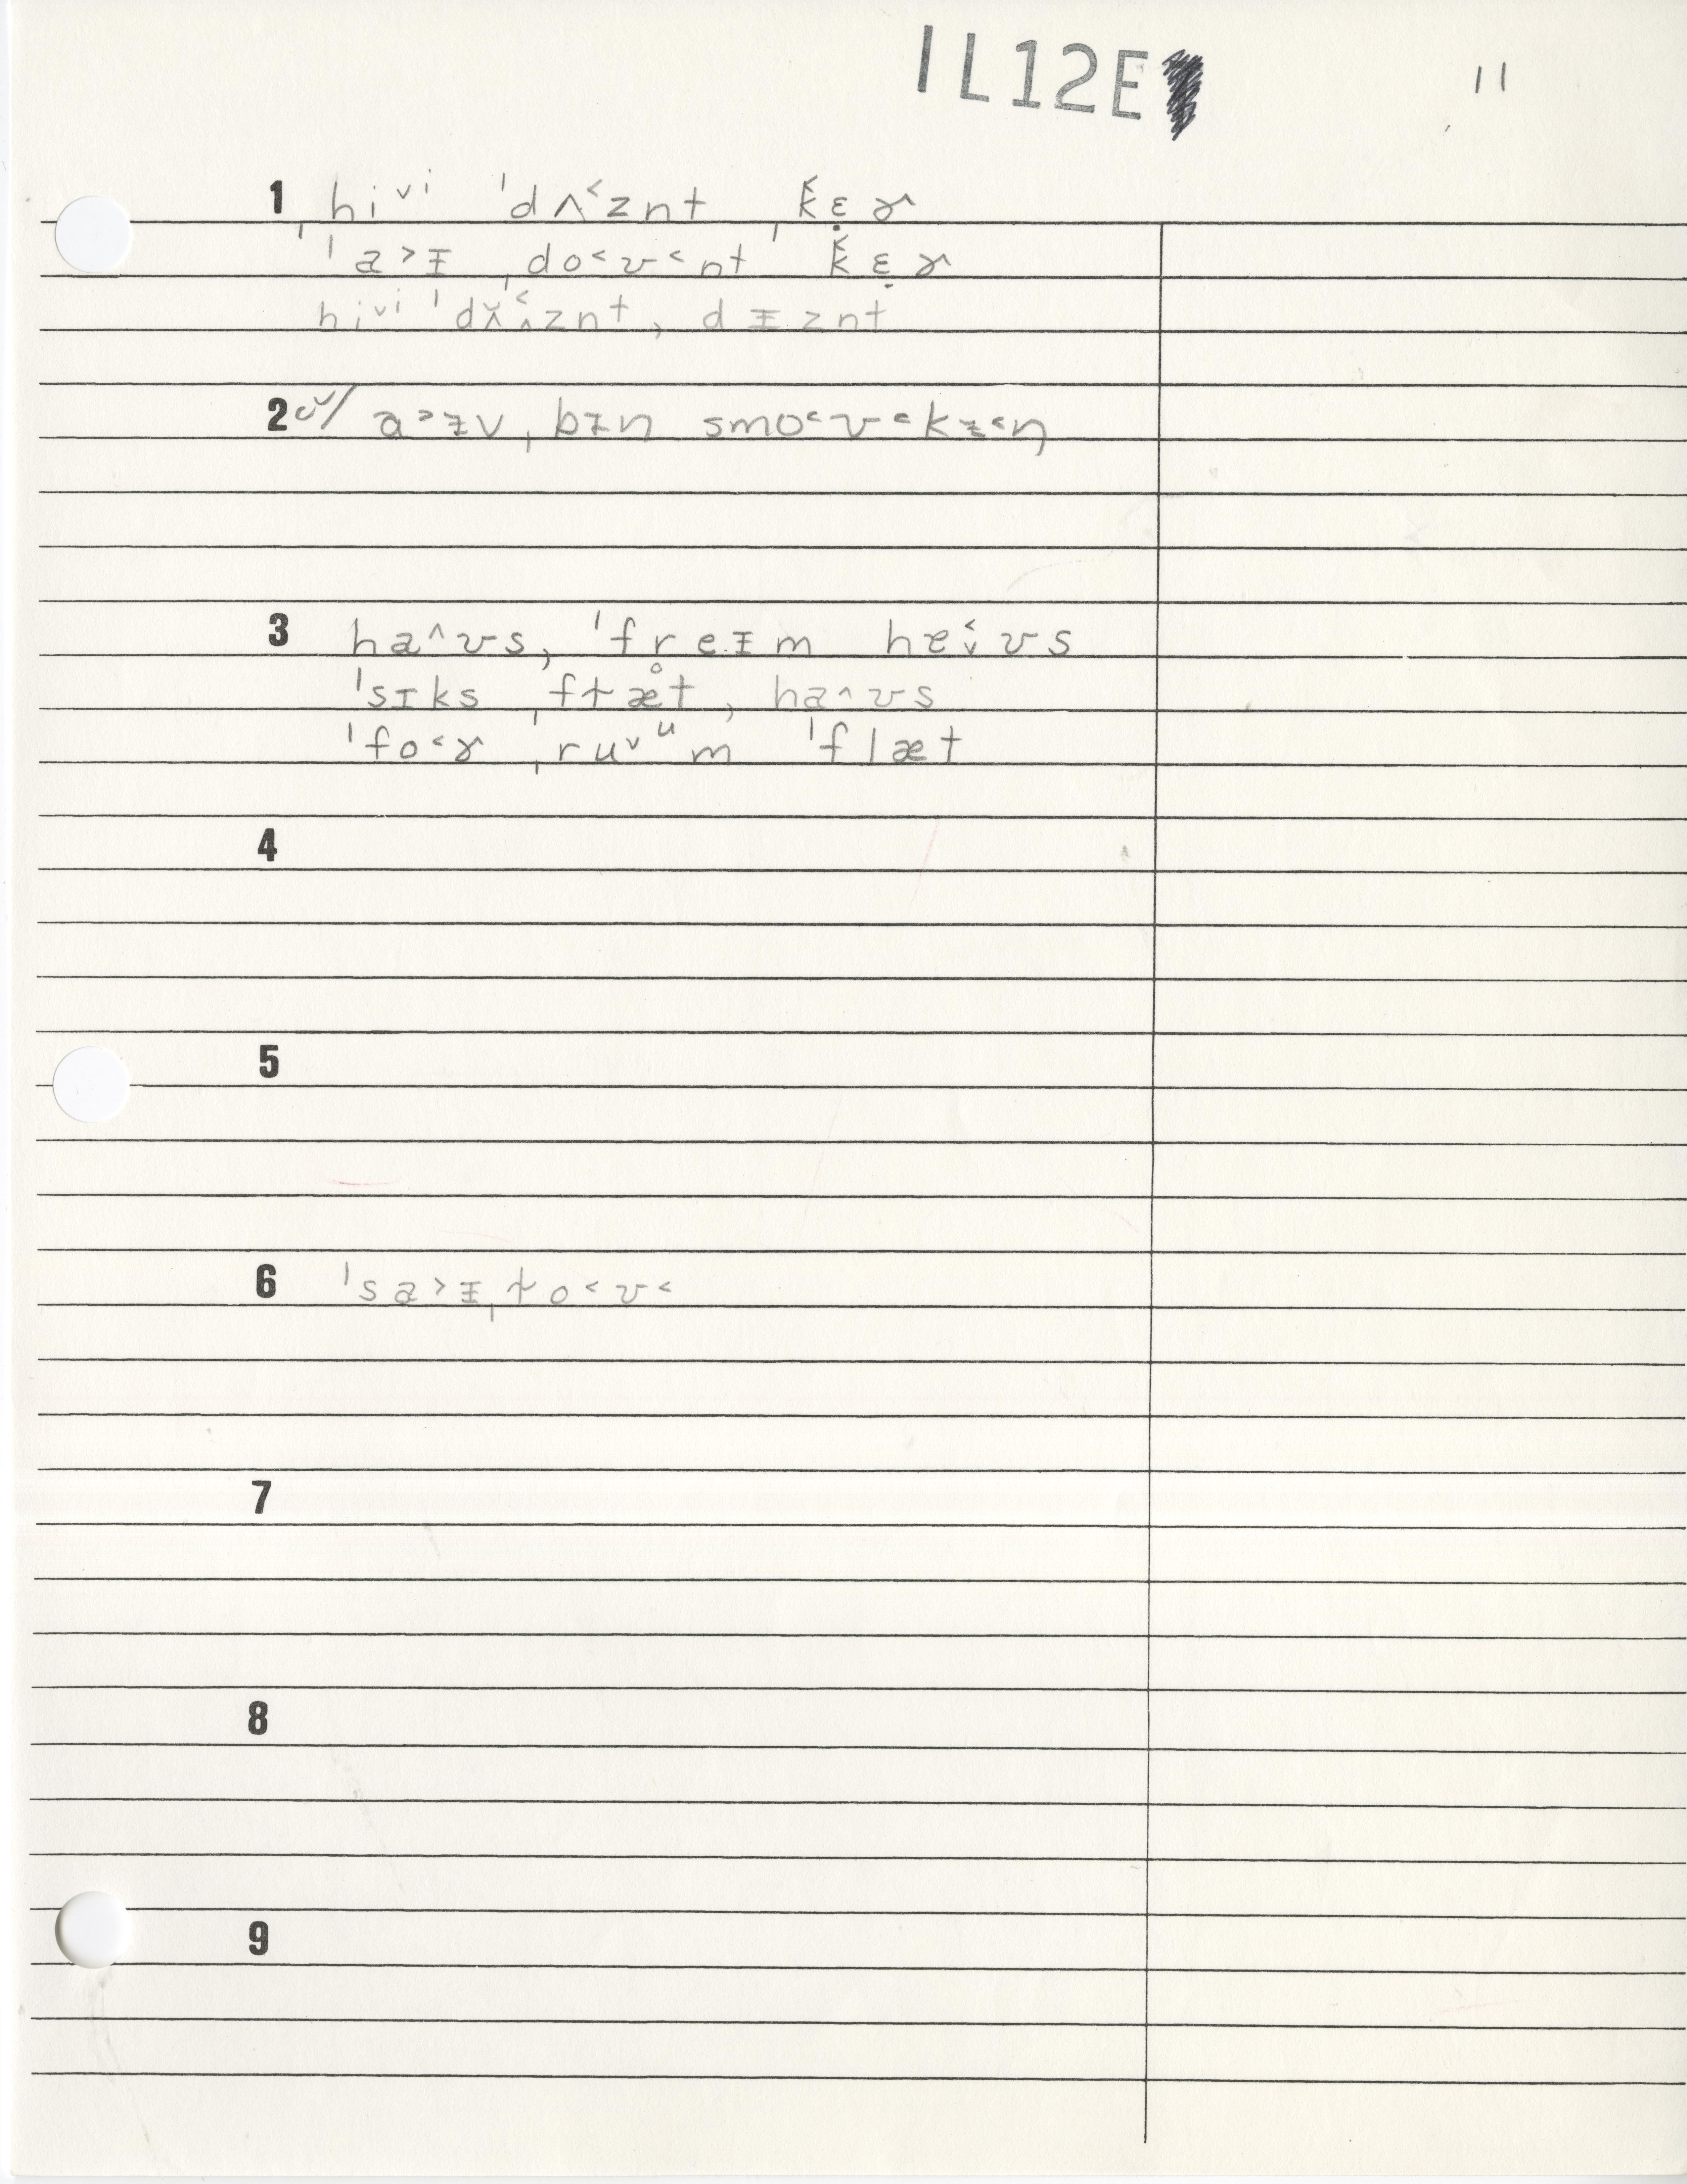 1L12E
11
1 hiᵛⁱ ˈdʌ˂znt k̬˂ɛ̣ɚ
ˌˈa˃ɪ ˌdo˂ʊ˂nt ˈk˂ɛ̣ɚ
hiᵛⁱ ˈdʌ̌˂znt, dɪznt
2 cv/ a˃ɪv ˌbɪn smo˂ʊ˂kɪ˂ŋ
3 ha^ʊs, ˈfreɪm hæʊs
ˈsɪks ˌfɫæt, ha^ʊs
ˈfo˂ɚ ˌruᵛᵘm ˈflæt
4
5
6 ˈsa˃ɪˌɫo˂ʊ˂
7
8
9